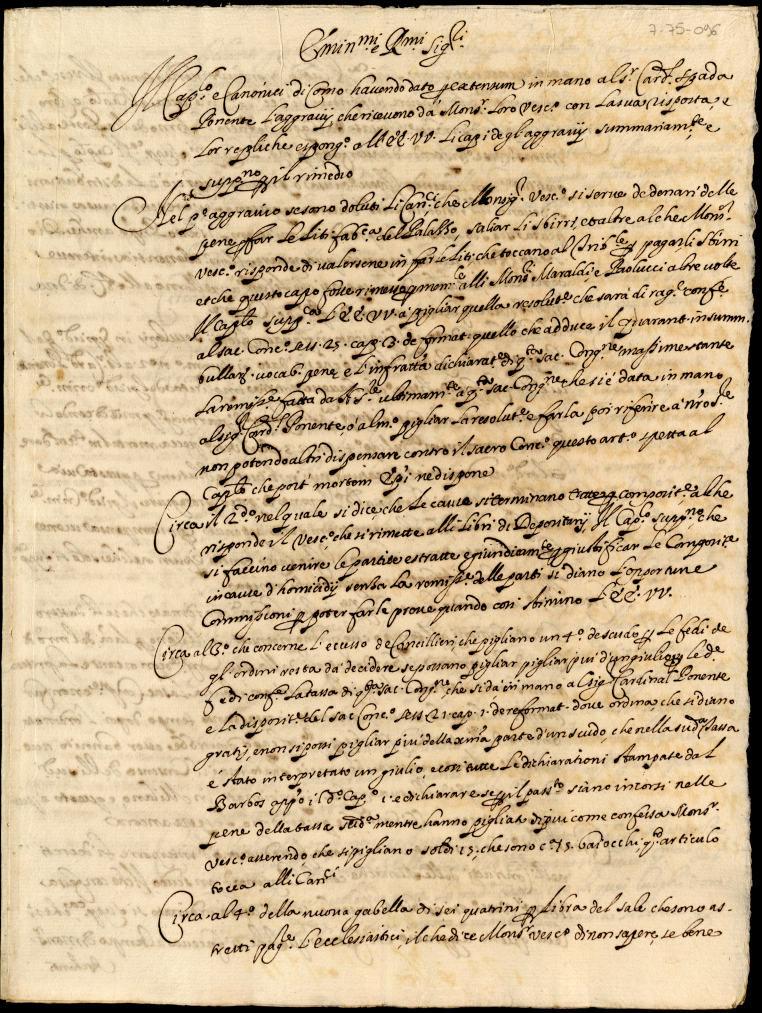 7-75-096
Emin.mi e R.mi Sig.ri
Il Cap.o e Canonici di Como havendo dato p extensum in mano al s.r Card. Spada
Ponente L'aggravij, che ricevono da Mons.r Loro Vesc.o con La sua risposta, e
Lor repliche espong.o all'EE. VV. Li capi degl'aggravij summariam.te e
supp.no p il rimedio
Nel p.o aggravio se sono doluti Li Can.ci che Monsig.r Vesc.o si serve de denari delle
pene p far Le Liti, fab.ca del Palazzo, salariar Li Sbirri, et altre al che Mons.r
Vesc.o risponde di valersene in far le Liti, che toccano al Trib.le p pagarli Sbirri
et che questo capo fosse rimesso alli Mons.ri Maraldi, e Paolucci altre volte
Il Cap.lo supp.ca L'EE VV. a pigliar quella resolut.e che sarà di rag.e conf.e
al sac. Conc.o sess. 25. cap. 3. de format. quello che adduce il Quarant. in summ.
bullar. vocab. pene, e L'infratta dichiarat.e di q.ta sac. Cong.ne massime stante
La remiss.e fatta da N. S.re ultimam.te a q.ta sac. Cong.ne che si è data in mano
al sig.r Card.l Ponente, o alm.o pigliar La resolut.e e farla poi riferire a N'ro S.re
non potendo altri dispensare contro il sacro Conc.o questo art.o spetta al
Cap.lo che post mortem Ep.i ne dispone
Circa il 2.do nel quale si dice, che Le cause si terminano p composit.e al che
risponde il Vesc.o che si rimette alli Libri di Depositarij, Il Cap.lo supp.no che
si faccino venire Le partite estratte e giustificar Le Composit.e
in cause d'homicidij senza La remiss.e delle parti si diano L'opportune
Commissioni p poter far le prove quando così stimino L'EE. VV.
Circa al 3.o che concerne L'ecesso de Cancillieri che pigliano un 4.o de scudo p Le fedi de
gl'ordini resta da decidere se possano pigliar pigliar più d'un giulio p le d.e
fedi conf.e La tassa di q.ta sac. Cong.ne, che si dà in mano al sig. Cardinal Ponente
e La disposit.e del sac Conc.o sess. 21. cap. 1. de reformat. dove ordina, che si diano
gratis, e non si possi pigliar più della x.ma parte d'un scudo che nella sud.a Tassa
è stato interpretato un giulio, e con tutte Le dichiarationi stampate dal
Barbos. app.o il d.o Cap. 1. e dichiarare se p il pass.to siano incorsi nelle
pene della tassa sud.a mentre hanno pigliat. di più come confessa Mons.r
Vesc.o asserendo che si pigliano soldi 15, che sono c.a 75. baiocchi q.to articulo
tocca alli Can.ci
Circa al 4.o della nuova gabella di sei quatrini p Libra del sale che sono as-
tretti pag.re L'ecclesiastici, il che dice Mons.r Vesc.o di non sapere, se bene